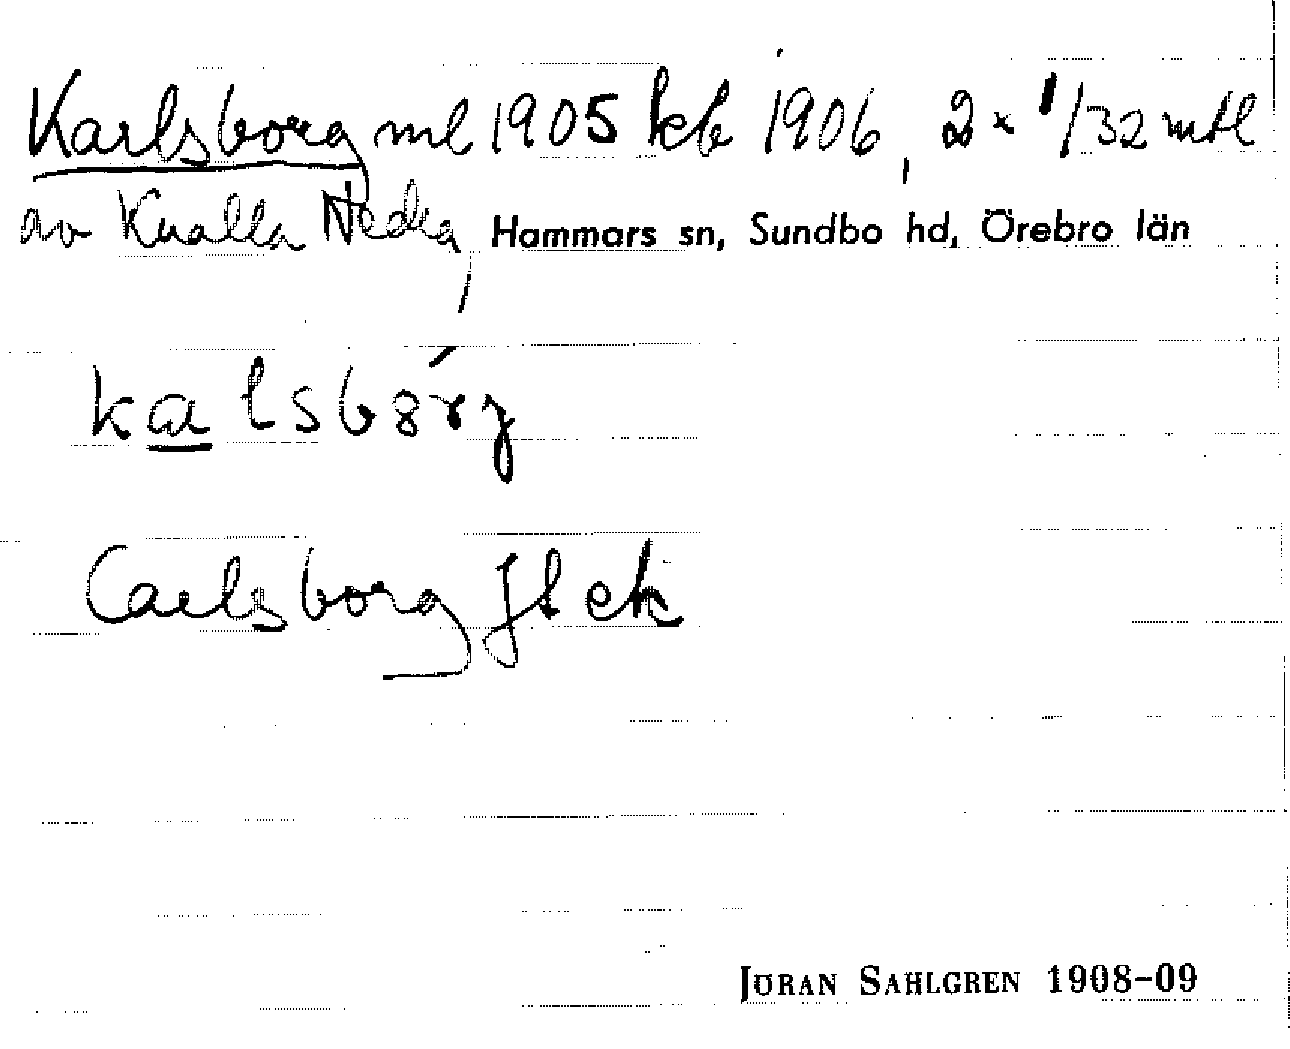 Karlsborg ml 1905 kb 1906, 2 x 1/32 mtl
av Knalla Nedra, Hammars sn, Sundbo hd, Örebro län
kalsbórg
Carlsborg Jb ek
JÖRAN SAHLGREN 1908-09